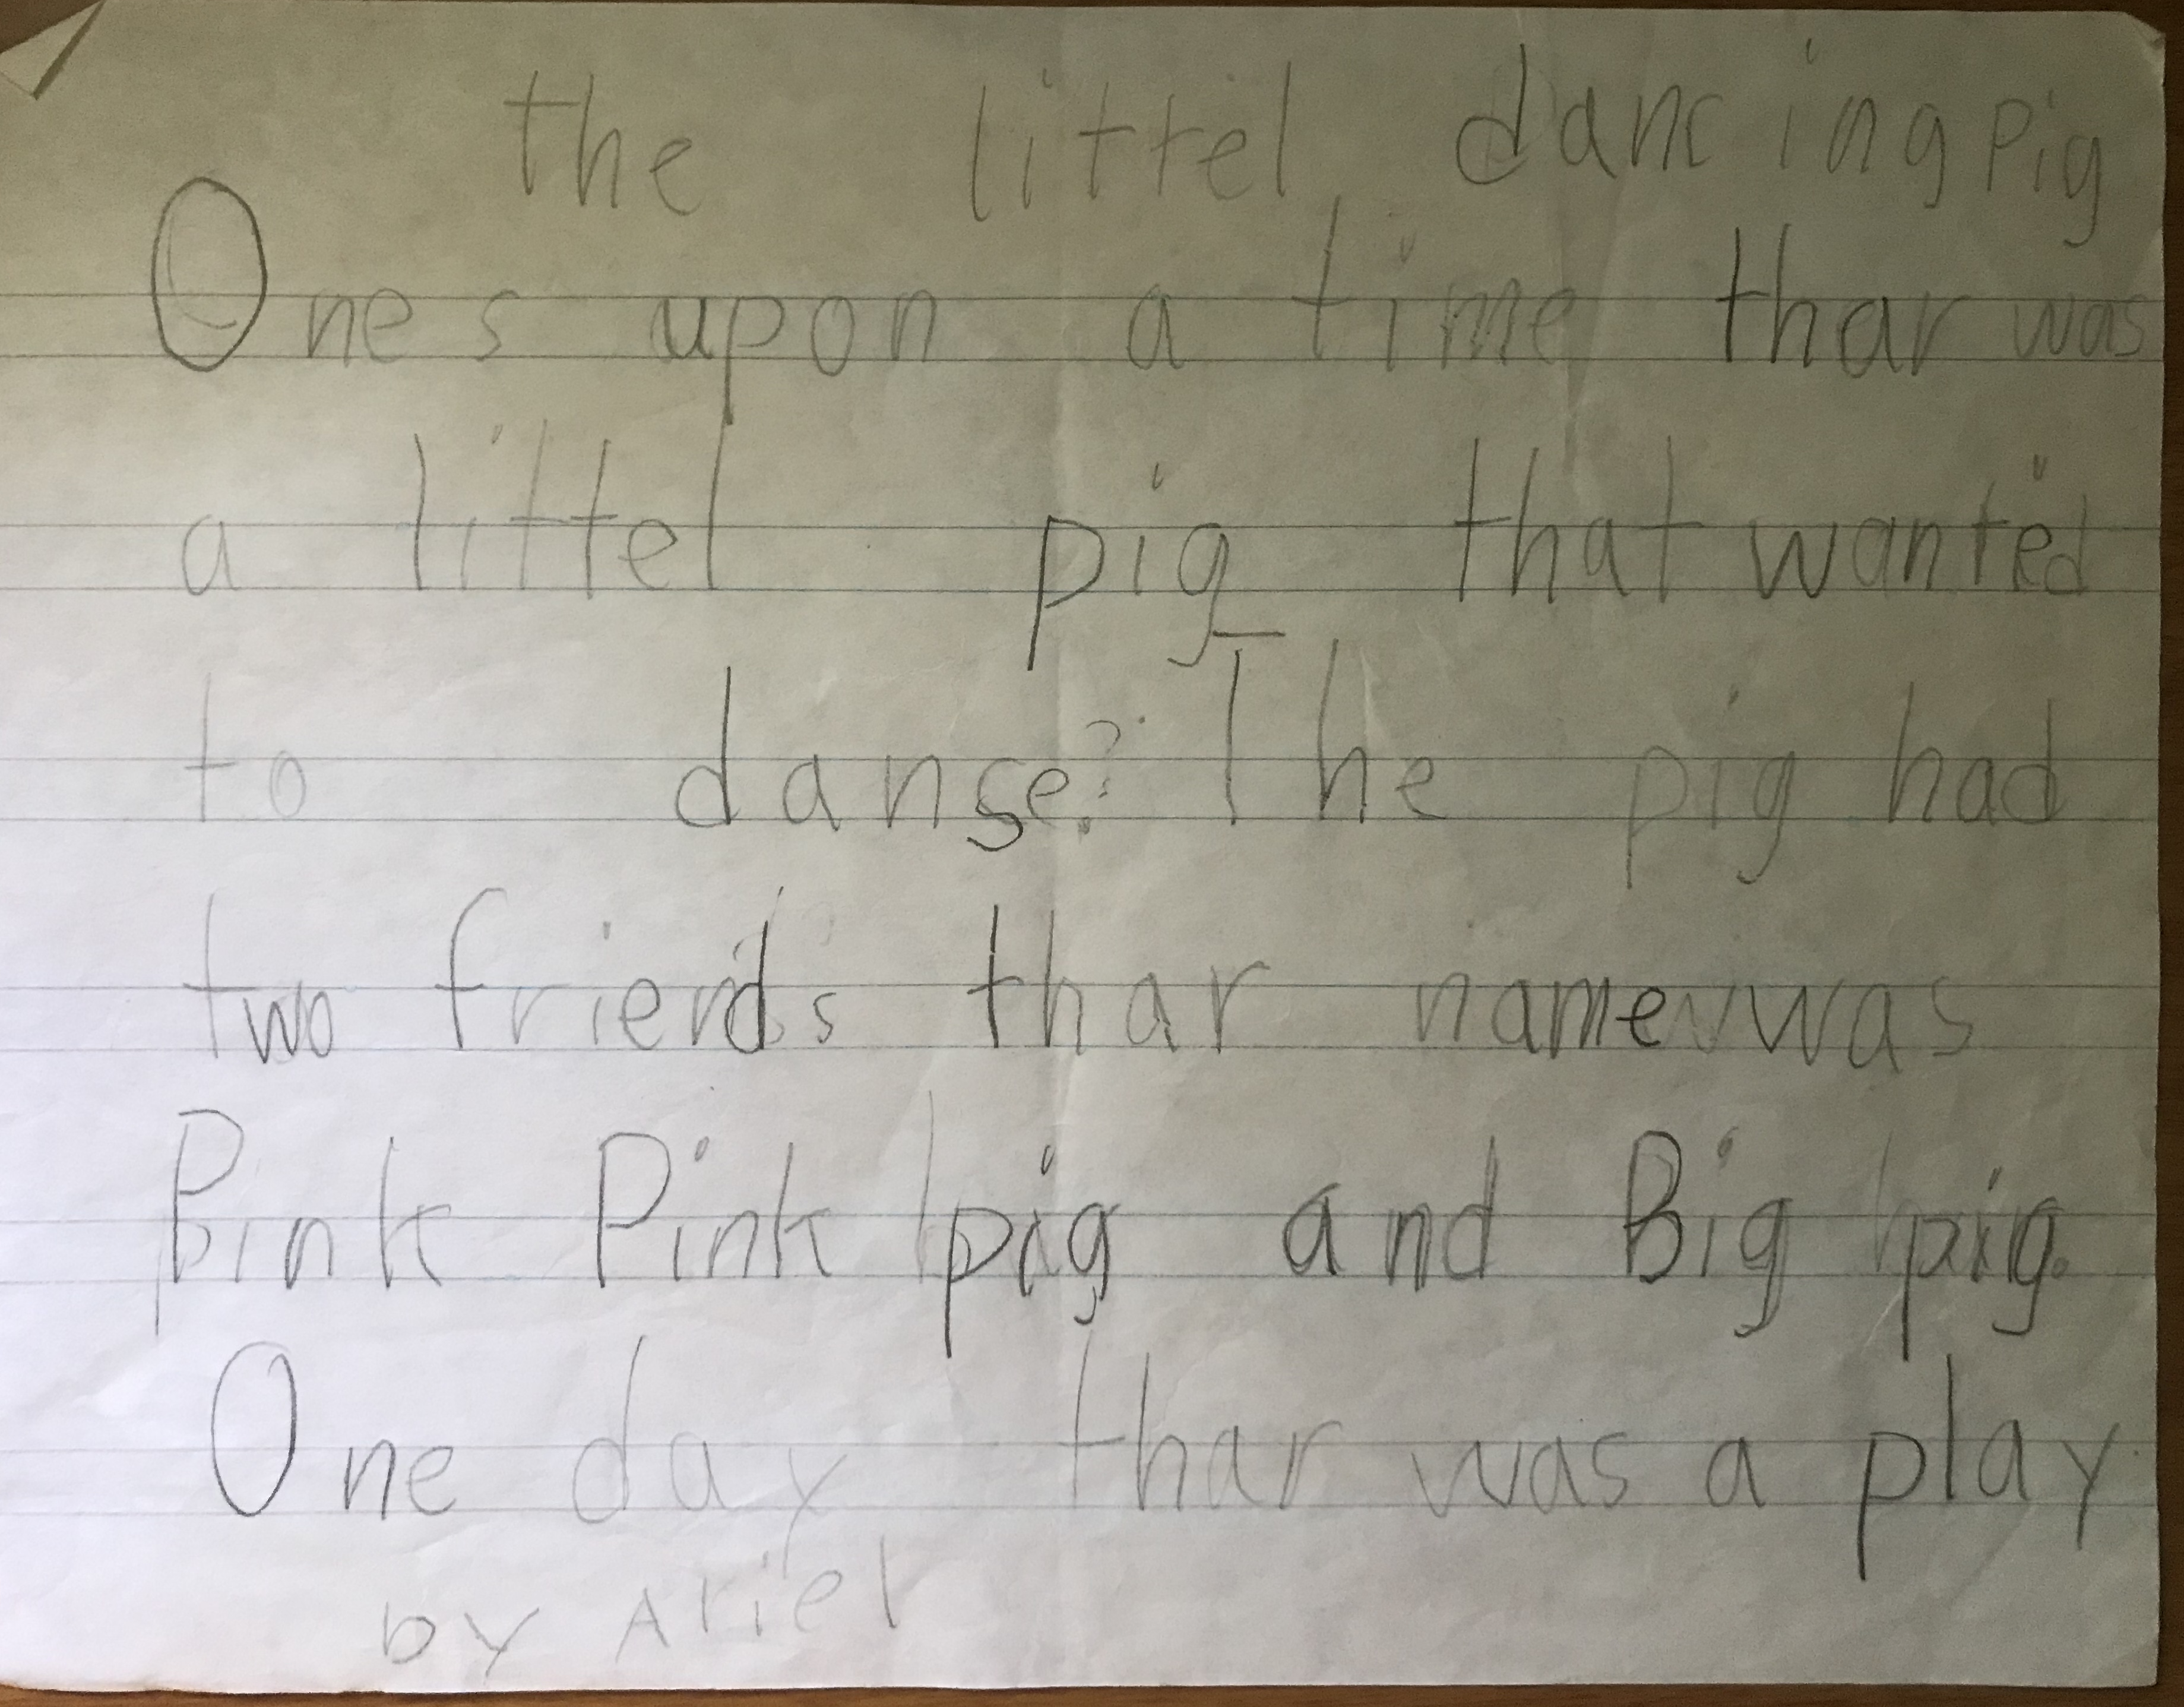 the littel dancing pig
Ones upon a time thar was
a littel pig that wanted
to danse? The pig had
two friends thar name was
Pink Pink pig and Big pig.
One day thar was a play
by Ariel